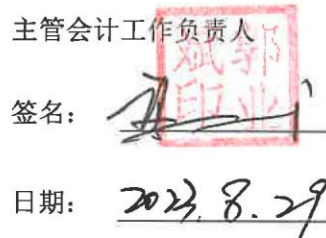 主管会计工作负责人
郭业斌印
签名：
日期： 2023.8.29